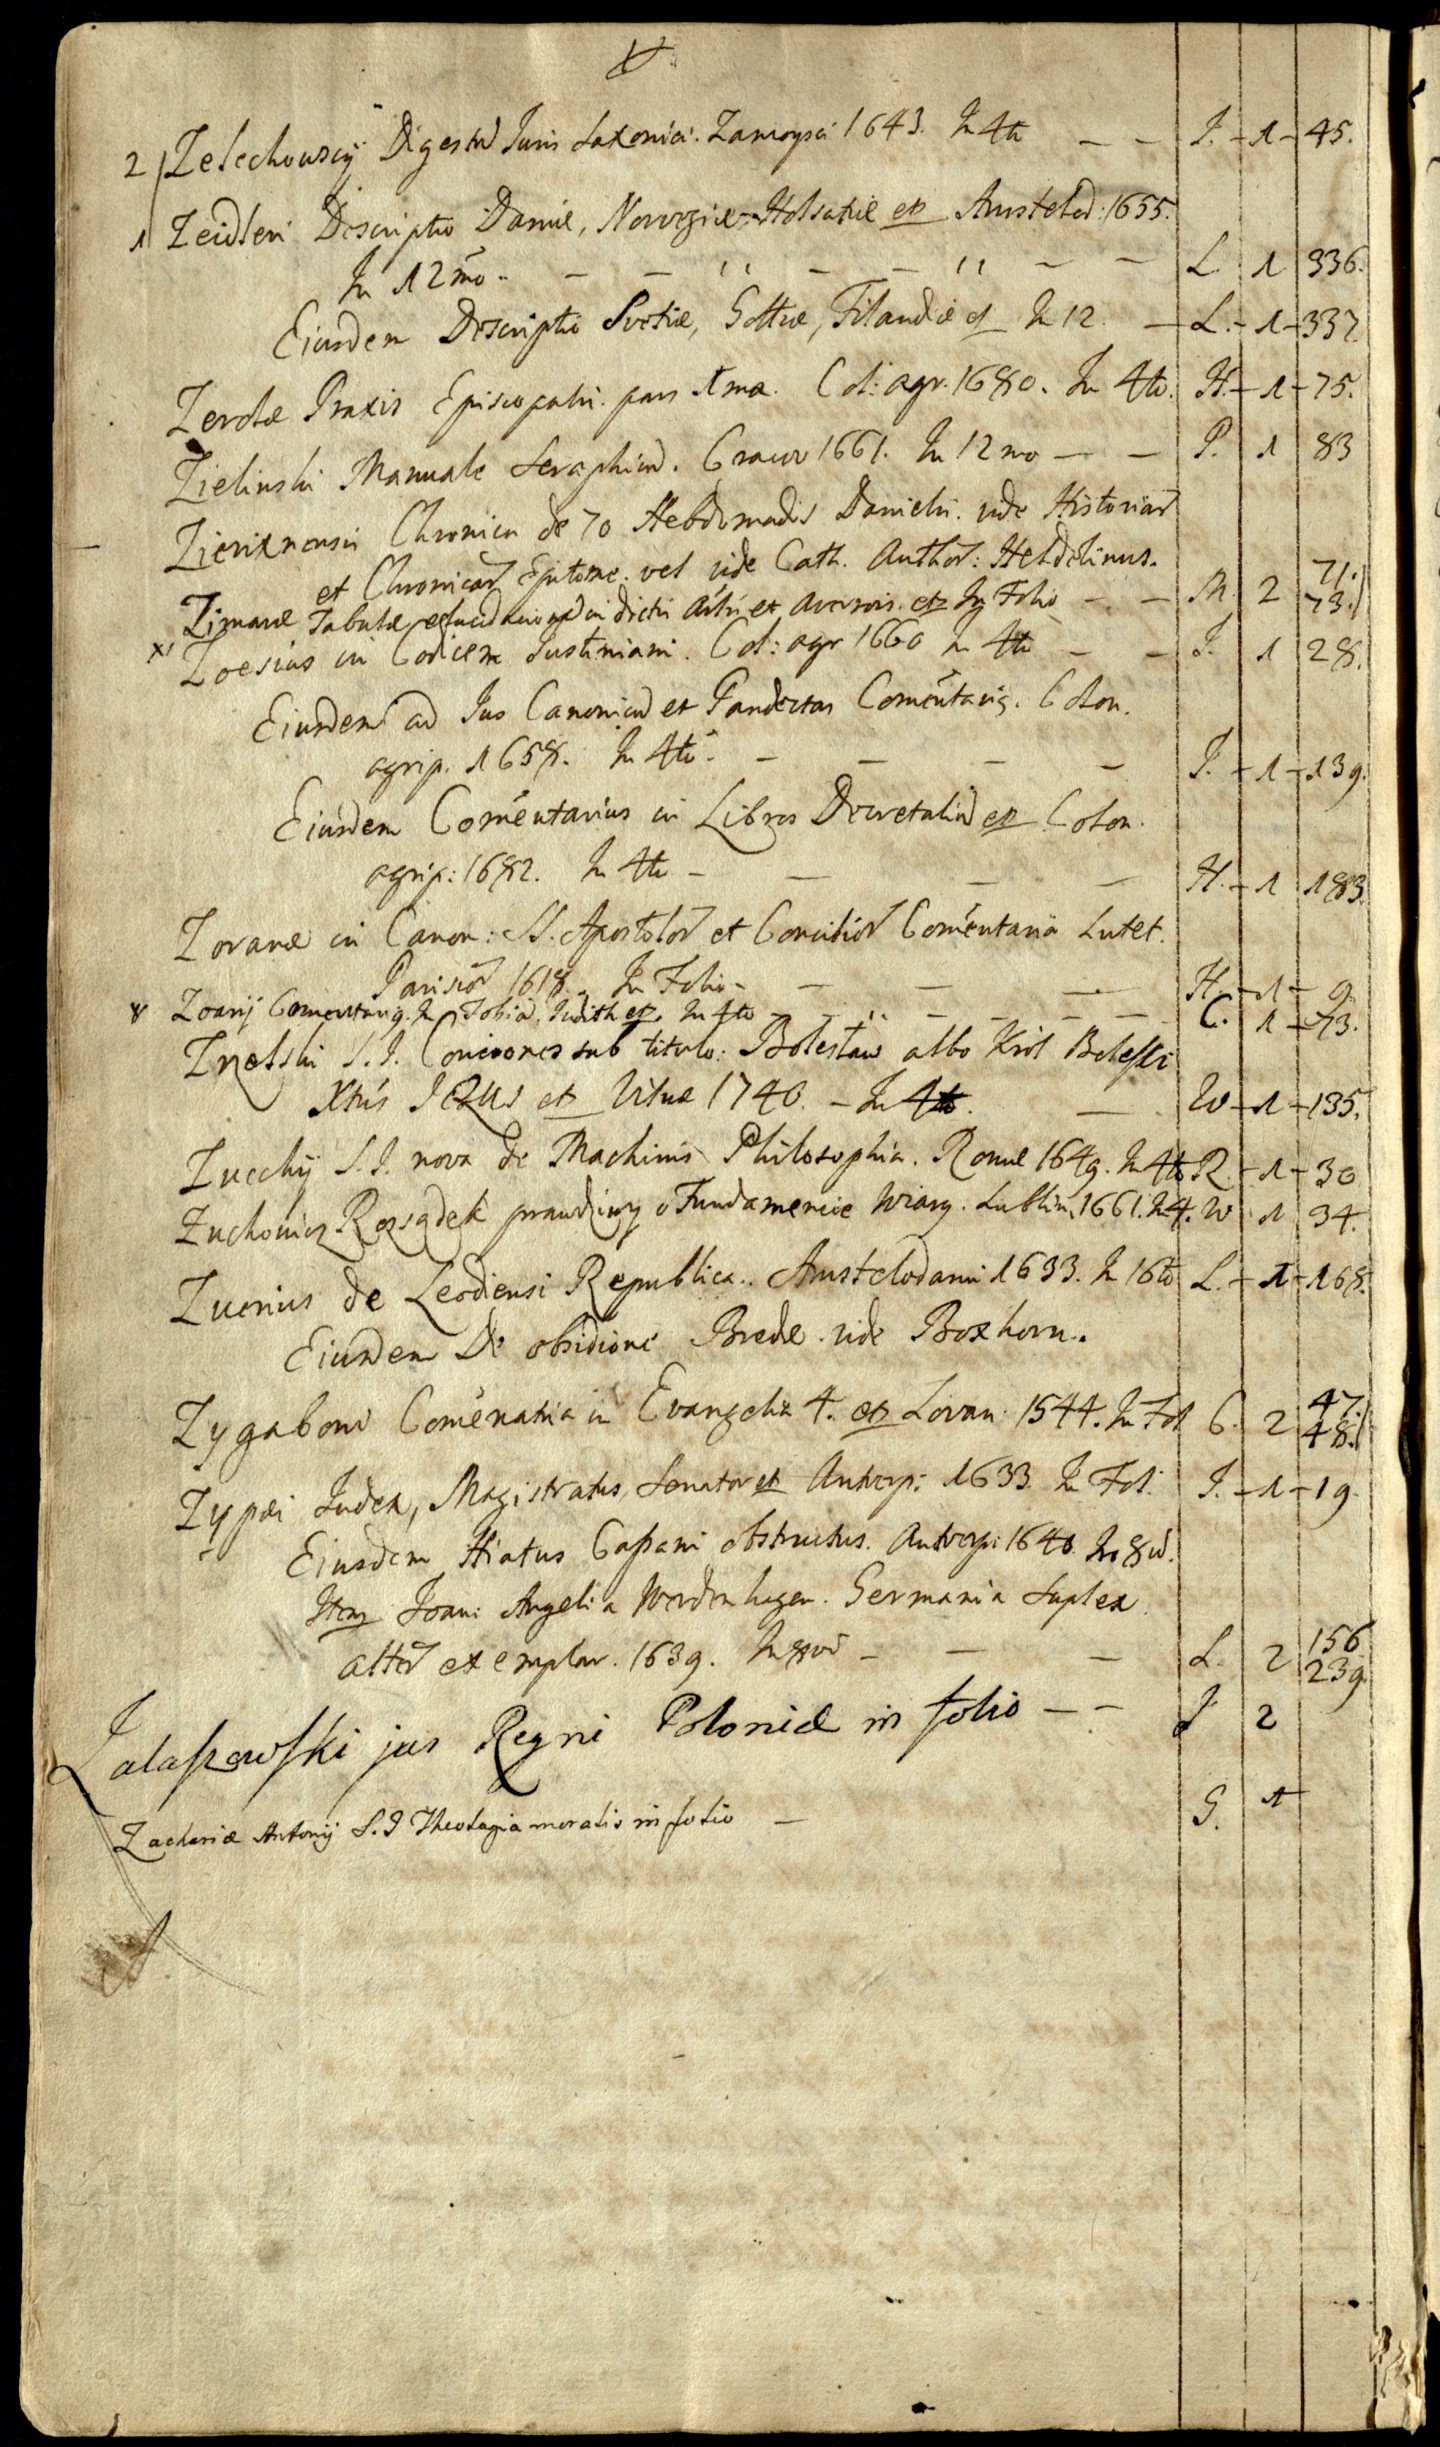 2 Zelechowscij Digestu Juris Saxonici. Zamoysci 1643. In 4to — — J. - 1 - 45.
1 Zeidleri Descriptio Daniæ, Norvegiæ, Holsatiæ etc Amstelod: 1655.
In 12mo. — — — — — — L 1 336.
Eiusdem Descriptio Svetiæ, Gottiæ, Filandiæ et In 12. — L. - 1 - 337
Zerolæ Praxis Episcopalis. pars 1ma. Col: agr. 1680. In 4to. H. - 1 - 75.
Zielinski Manuale Seraphicu. Cracov 1661. In 12mo — — P. 1 83
Zierixnensis Chronica de 70 Hebdomadis Danielis. vide Historiar
et Chronicar Epitome. vel vide Cath. Author: Heldelinus.
Zimaræ Tabulæ in dictis Arist: et Averrois. etc In Folio — — M. 2 71. 73.
x Zoesius in Codicem Justiniani. Col: agr 1660 In 4to — — J. 1 28.
Eiusdem ad Jus Canonicu et Pandectas Comentarij. Colon.
agrip. 1658. In 4to. — — — — J. - 1 - 139.
Eiusdem Comentarius in Libros Decretaliu etc Colon.
agrip: 1682. In 4to — — — — H. - 1 183.
Zoranæ in Canon: SS. Apostolor et Concilior Comentaria Lutet.
Parisior 1618. In Folio — — — — H. - 1 - 9.
Zoarij Comentarij. In Tobia, Judith etc. In 4to — — — — — C. 1 - 73.
Znelski S. J. Conciones sub titulo: Bolesław albo Krol Bolesci
Xtus JEZUS et 1740. — In 4to. — W - 1 - 135.
Zucchij S. J. nova de Machinis Philosophia. Romæ 1649. In 4to R. - 1 - 30
Zuchowicz Rozsądek prawdziwy o Fundamencie Wiary. Lublin, 1661. In 4. W 1 34.
Zuerius de Leodiensi Republica. Amstelodami 1633. In 16to L. - 1 - 168.
Eiusdem De obsidione Bredæ. vide Boxhorn.
Zygaboni Comentaria in Evangelia 4. etc Lovan: 1544. In Fol C. 2 47. 48.
Zypæi Judex, Magistratus, Senator et Antverp: 1633. In Fol: J. - 1 - 19.
Eiusdem Hiatus Cassani obstructus. Antverp: 1640. In 8vo.
Item Joani Angeli a Werdenhagen. Germania Suplex
alter exemplar. 1639. In 8vo — — — L. 2 156 239.
Zalaszowski jus Regni Poloniæ in folio — — J 2
Zachariæ Antonij S. J Theologia moralis in folio — G. 1